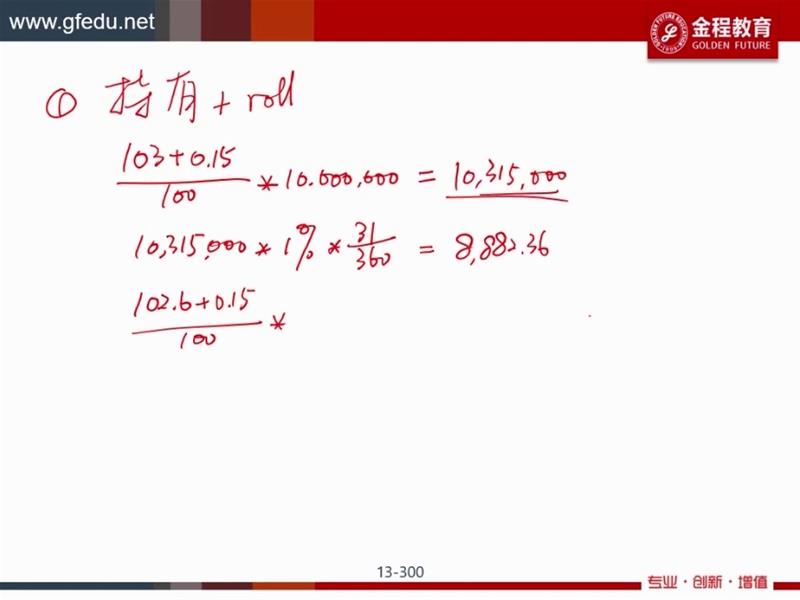 www.gfedu.net
金程教育
GOLDEN FUTURE
① 持有 + roll
103+0.15 / 100 * 10.000,000 = 10,315,000
10,315,000 * 1% * 31/360 = 8,882.36
102.6+0.15 / 100 *
13-300
专业·创新·增值